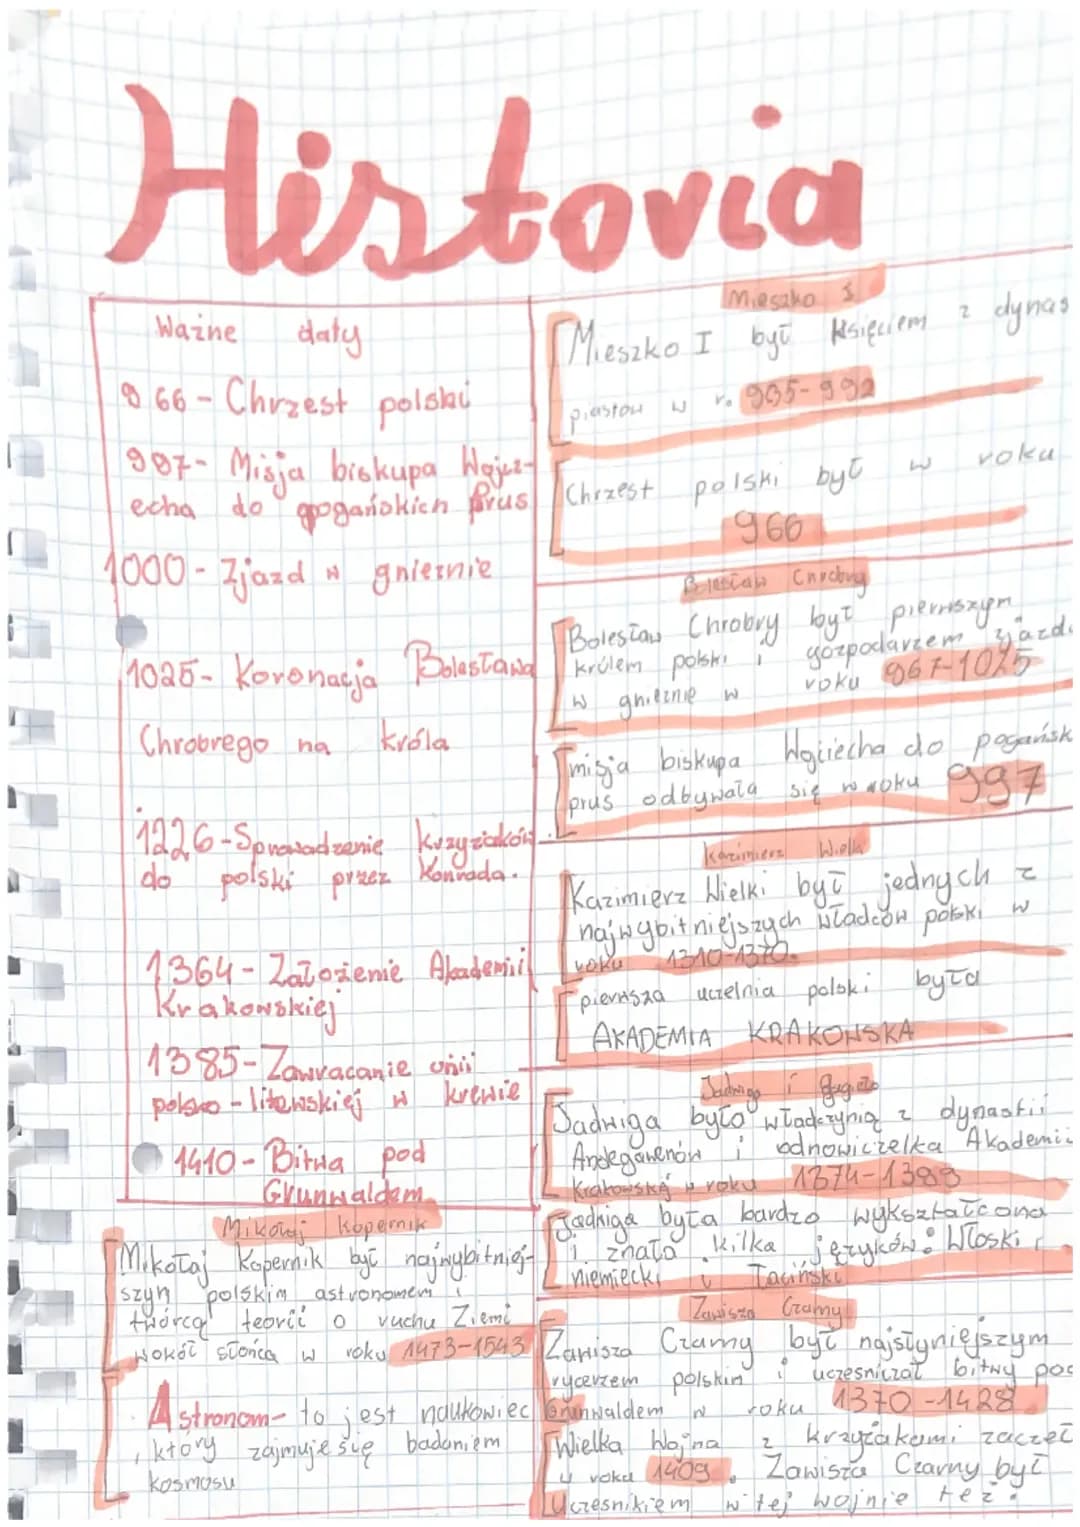 Historia
Ważne daty
966 - Chrzest polski
997- Misja biskupa Wojcz-
echa do pogańskich Prus
1000 - Zjazd w gnieznie
1025 - Koronacja Bolesława
Chrobrego na króla
1226 - Sprowadzenie krzyżaków
do polski przez Konrada.
1364 - Założenie Akademii
Krakowskiej
1385 - Zawracanie unii
polsko - litewskiej w krewie
1410 - Bitwa pod
Grunwaldem
Mikołaj Kopernik
Mikołaj Kopernik był najwybitniej-
szym polskim astronomem i
twórcą teorii o ruchu Ziemi
wokół słońca w roku 1473-1543
Astronom - to jest naukowiec
, który zajmuje się badaniem
kosmosu
Mieszko I
Mieszko I był Księciem z dynas
piastów w r. 935-992
Chrzest polski był w roku
966
Bolesław Chrobry
Bolesław Chrobry był pierwszym
królem polski i gozpodarzem zjazdu
w gnieznie w roku 967-1025
misja biskupa Wojciecha do pogańsk
prus odbywała się w roku 997
Kazimierz Wielki
Kazimierz Wielki był jednych z
najwybitniejszych władców polski w
roku 1310-1370.
pierwsza uczelnia polski była
AKADEMIA KRAKOWSKA
Jadwiga i Jagiełło
Jadwiga było władczynią z dynastii
Andegawenów i odnowiczelka Akademii
Krakowskij w roku 1374-1399
Jadwiga była bardzo wykształcona
i znała kilka języków: Włoski,
niemiecki i Łaciński
Zawisza Czarny
Zawisza Czarny był najsłyniejszym
rycerzem polskim i uczesniczał bitwy pod
Grunwaldem w roku 1370-1428
Wielka Wojna z krzyżakami zaczęł
w roku 1409. Zawisza Czarny był
Uczesnikiem w tej wojnie też.